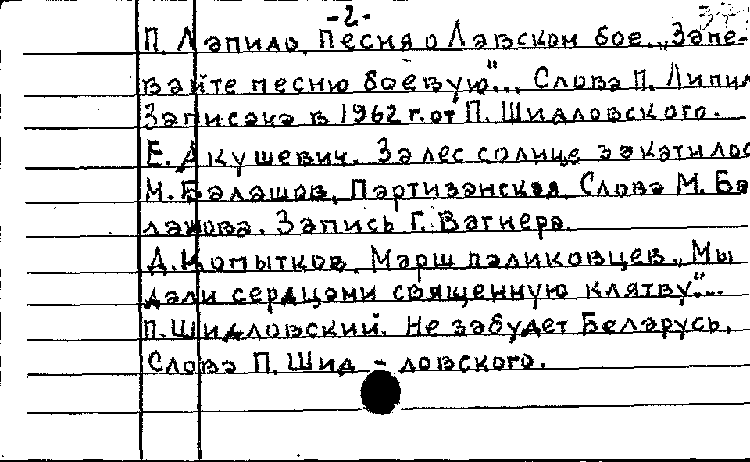 -2-
П. Лапило. Песня о Лавском бое. „Запе-
вайте песню боевую"... Слова П. Липил
Записана в 1962 г. от П. Шидловского.
Е. Акушевич. За лес солнце закатилос
М. Балашов. Партизанская. Слова М. Ба
лашова. Запись Г. Вагнера.
Д. Копытков. Марш паликовцев. „Мы
дали сердцами священную клятву"...
П. Шидловский. Не забудет Беларусь.
Слова П. Шид - ловского.